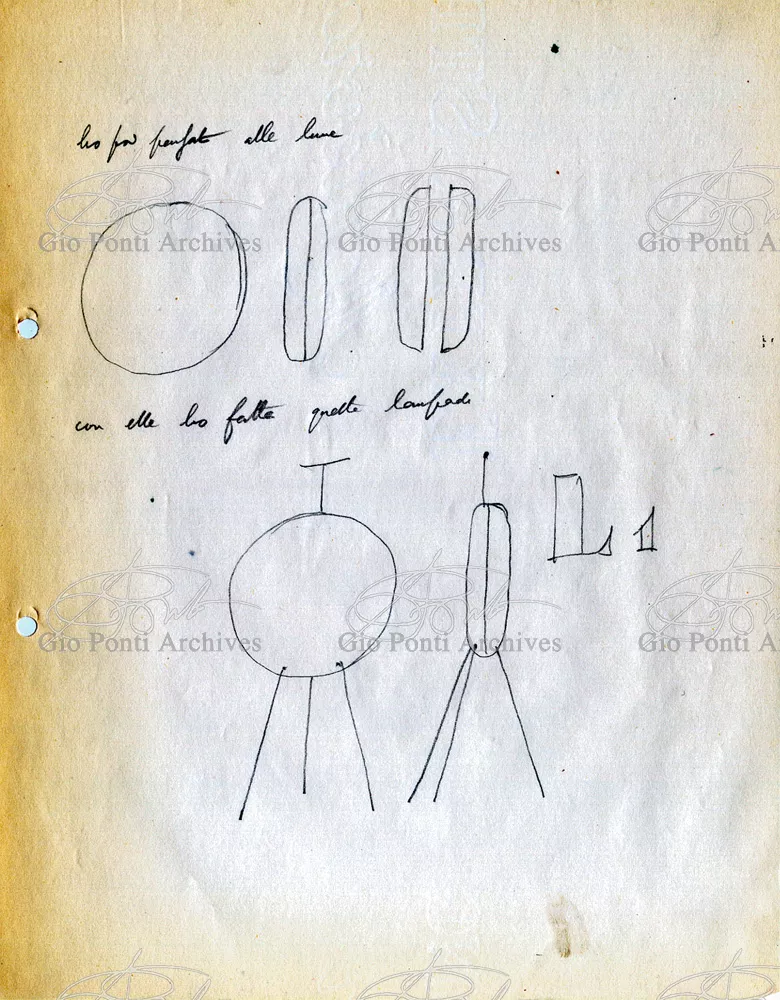 ho poi pensato alle lune
Gio Ponti Archives Gio Ponti Archives Gio Ponti A
con elle ho fatto queste lampade
Gio Ponti Archives Gio Ponti Archives Gio Ponti A